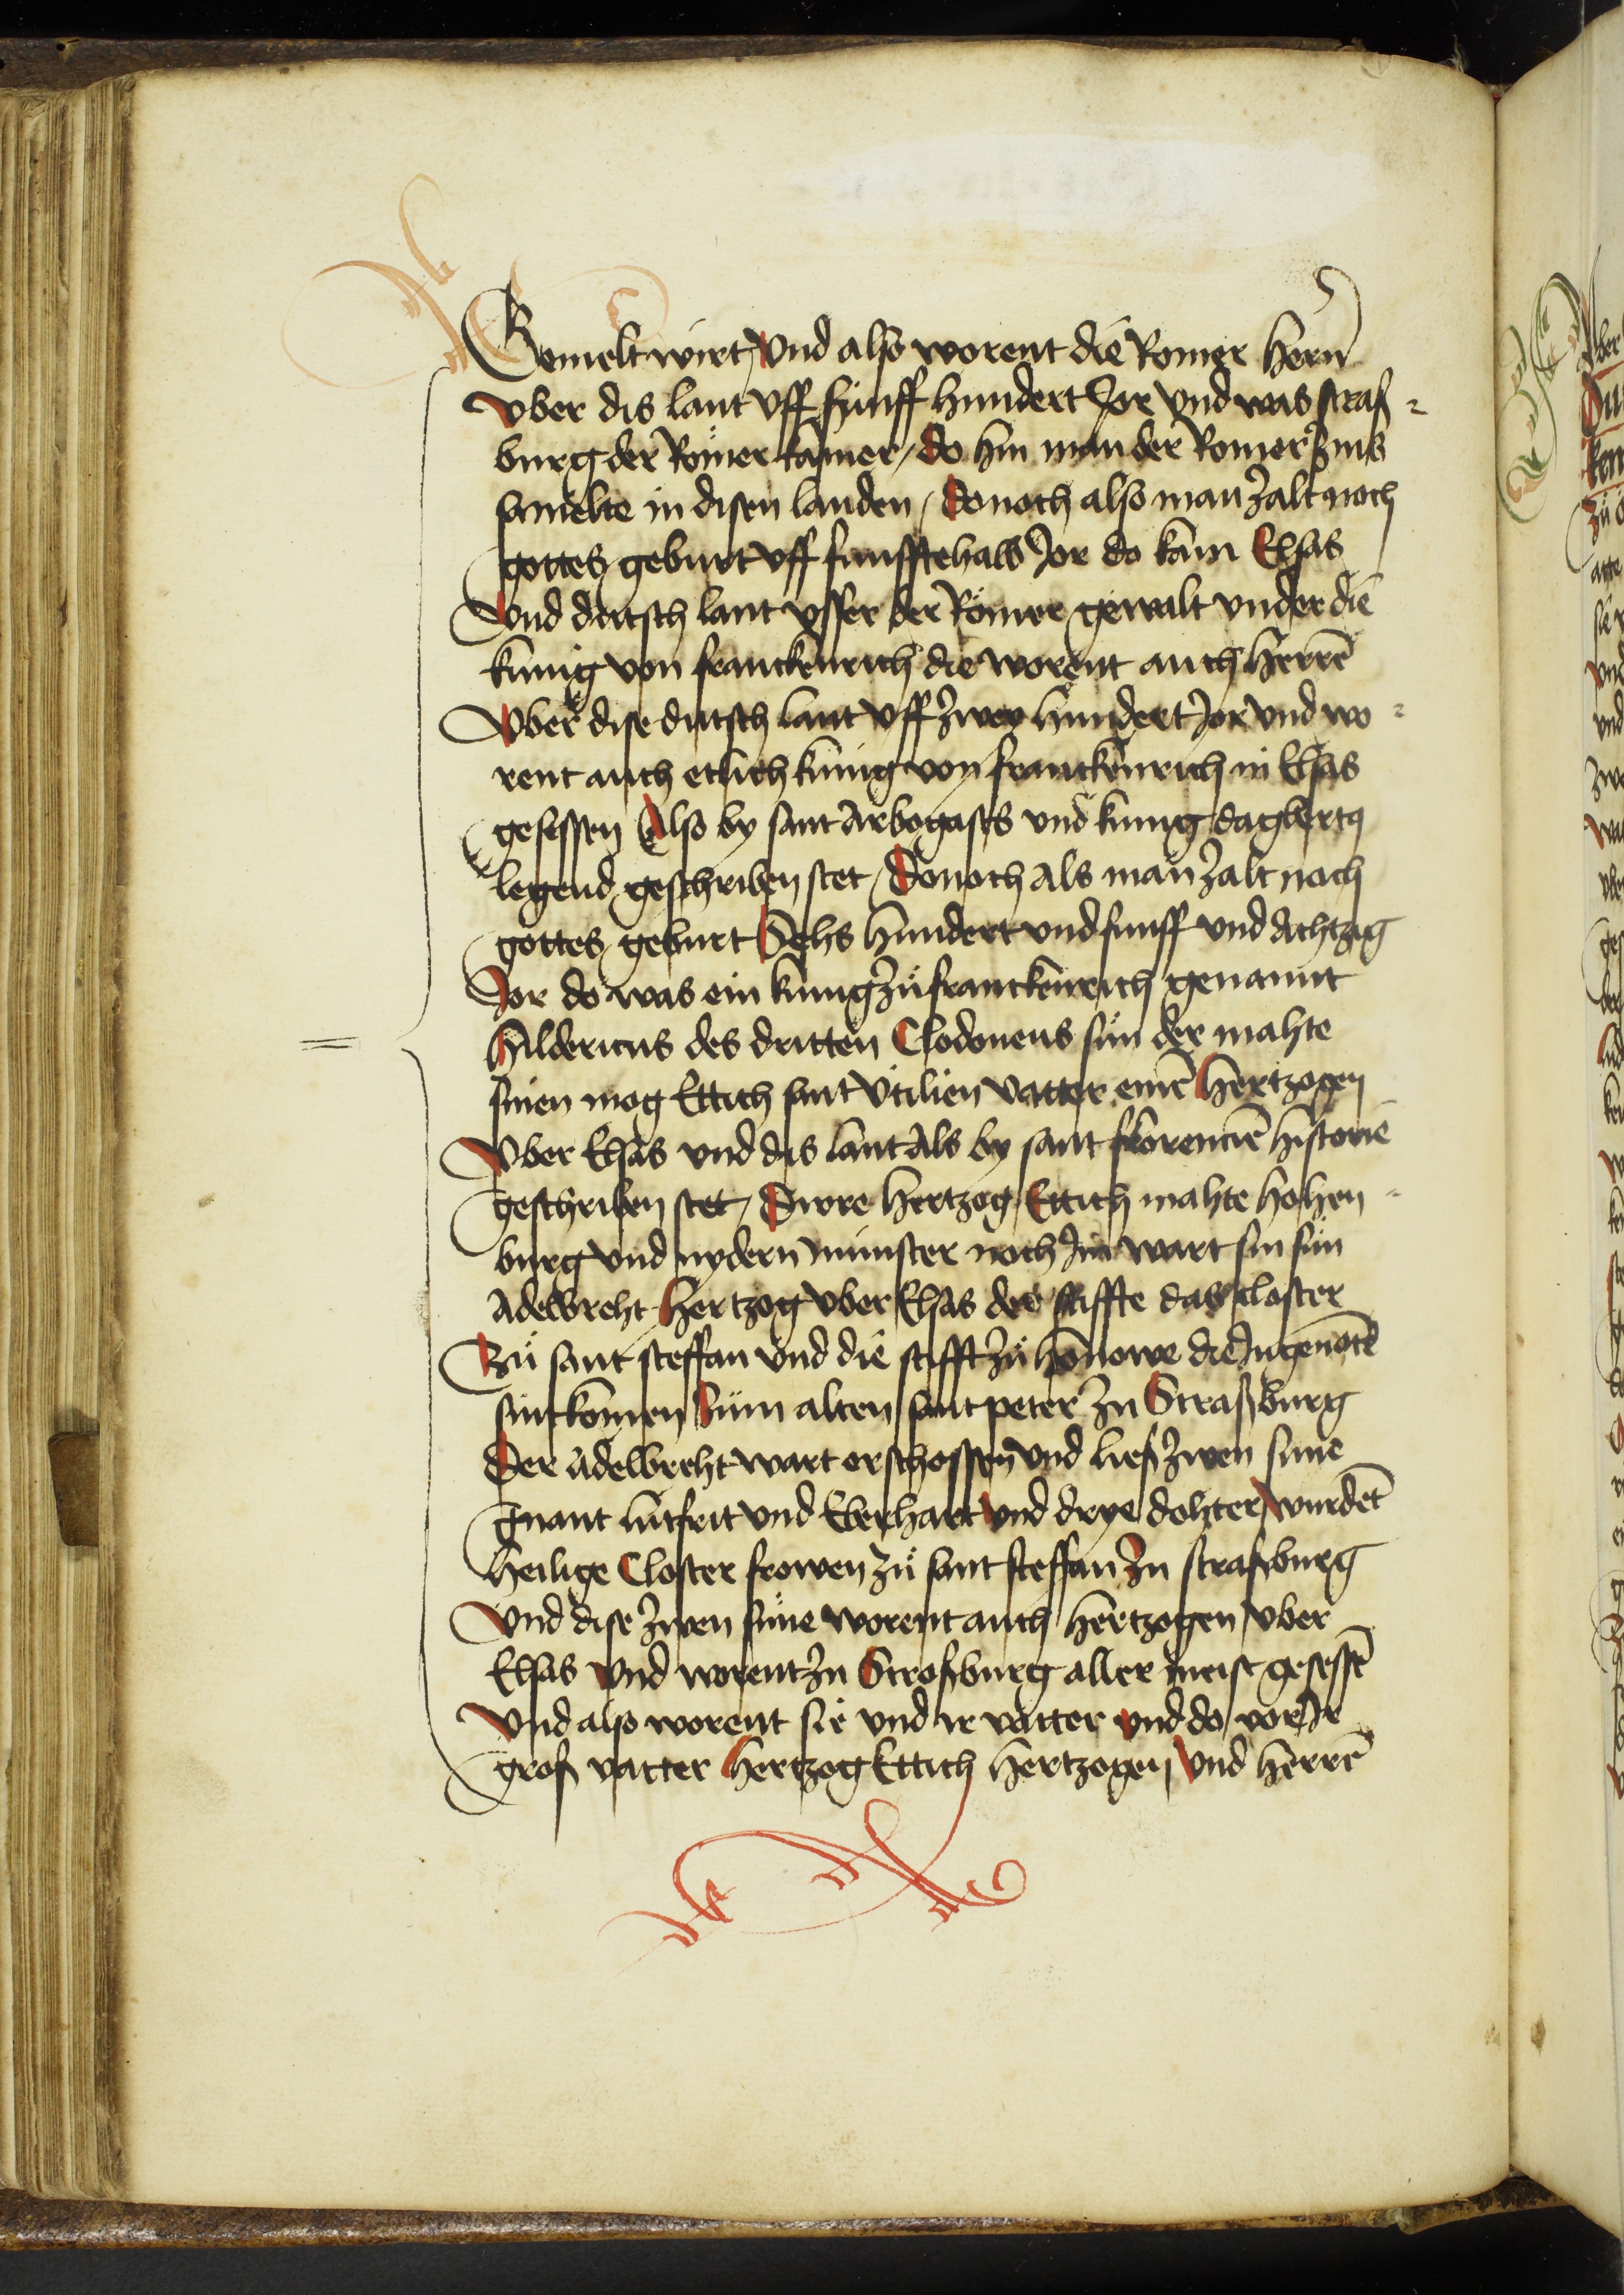 Gemelt wirt / Vnd also worent die Romer hern
vber dis lant vff funff hundert Jor vnd was straß-
burg der Römer kamer / do hin man der Romer zins
samelte in disen landen / Donoch also man zalt noch
gottes geburt vff funfftehalb Jor do kam Elsas
Vnd dutsch lant vsser der Römer gewalt vnder die
kunig von franckenrich die worent auch herrē
Vber dise dutsch lant vff zwey hundert Jor vnd wo-
rent auch etlich kunig von franckenrich in Elsas
gesessen Also by sant Arbogasts vnd kunig dagbertz
legend geschriben stet / Donoch als man zalt noch
gottes geburt Sehs hundert vnd funff vnd Achtzig
Jor do was ein kunig zů franckenrich genannt
hildericus des dritten Clodoueus sun der mahte
sinen mog Ettich sant Otilien vatter einē hertzogen
Vber Elsas vnd dis lant Als by sant florencie historiē
geschriben stet / Dirre hertzog Ettich mahte hohen-
burg vnd nydern munster noch Jm wart sin sun
Adelbreht hertzog vber Elsas der stiffte das closter
Zů sant steffan vnd die stifft zů honowe die Jngenotē
sint komen zum alten sant peter zu Straßburg
Der Adelbreht wart erschossen vnd ließ zwen sune
Gnant lutfrit vnd Eberhart vnd drye dohter wurdēt
heilige Closter frowen zů sant steffan zu straßburg
Vnd dise zwen sune worent auch hertzogen vber
Elsas vnd worent zu Stroßburg aller meist gesessē
Vnd also worent sie vnd ir vatter vnd do vor Jr
groß vatter hertzog Ettich hertzogen vnd herrē